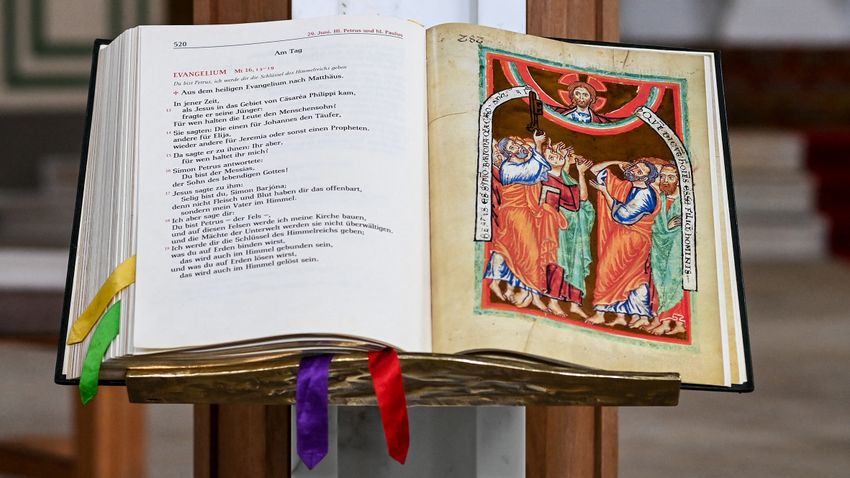 520
29. Juni. Hl. Petrus und hl. Paulus
Am Tag
EVANGELIUM Mt 16, 13–19
Du bist Petrus, ich werde dir die Schlüssel des Himmelreichs geben
✢ Aus dem heiligen Evangelium nach Matthäus.
In jener Zeit,
13 als Jesus in das Gebiet von Cäsaréa Philíppi kam,
fragte er seine Jünger:
Für wen halten die Leute den Menschensohn?
14 Sie sagten: Die einen für Johannes den Täufer,
andere für Elíja,
wieder andere für Jeremía oder sonst einen Propheten.
15 Da sagte er zu ihnen: Ihr aber,
für wen haltet ihr mich?
16 Simon Petrus antwortete:
Du bist der Messias,
der Sohn des lebendigen Gottes!
17 Jesus sagte zu ihm:
Selig bist du, Simon Barjóna;
denn nicht Fleisch und Blut haben dir das offenbart,
sondern mein Vater im Himmel.
18 Ich aber sage dir:
Du bist Petrus – der Fels –,
und auf diesen Felsen werde ich meine Kirche bauen,
und die Mächte der Unterwelt werden sie nicht überwältigen.
19 Ich werde dir die Schlüssel des Himmelreichs geben;
was du auf Erden binden wirst,
das wird auch im Himmel gebunden sein,
und was du auf Erden lösen wirst,
das wird auch im Himmel gelöst sein.
282
52